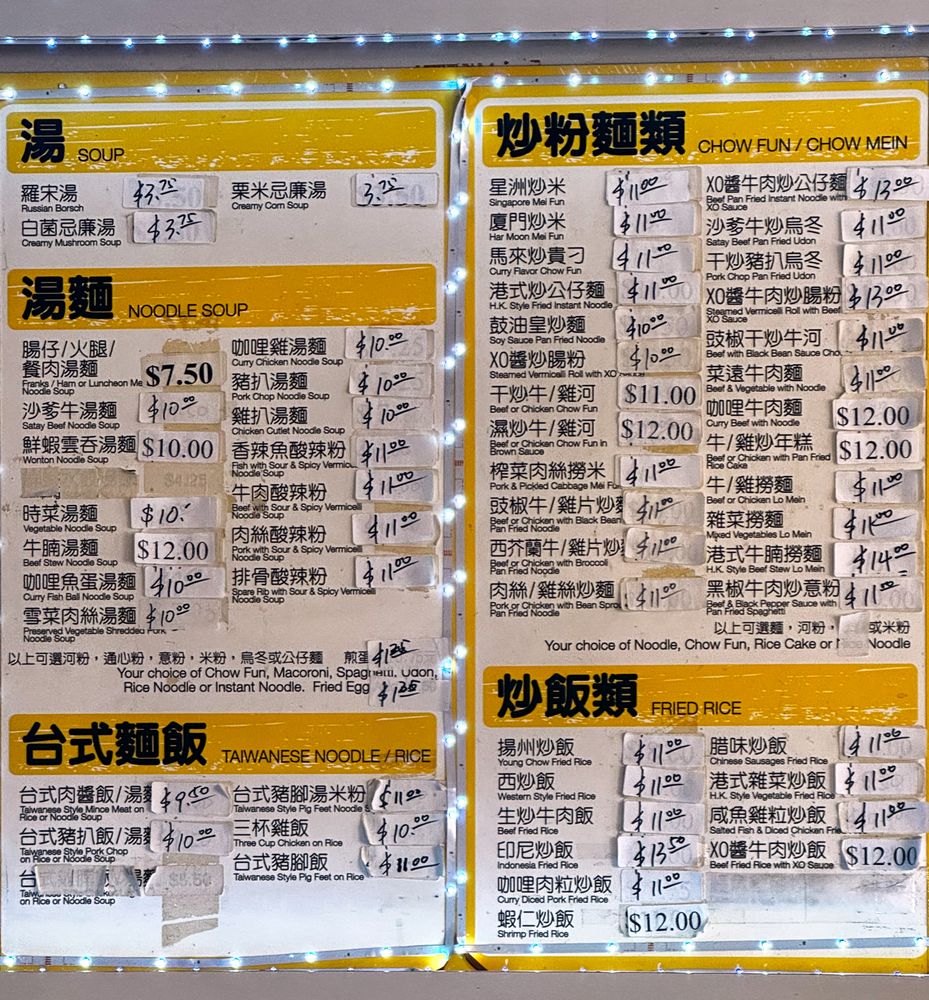 湯 SOUP
羅宋湯 $3.75
Russian Borsch
栗米忌廉湯 3.75
Creamy Corn Soup
白菌忌廉湯 $3.75
Creamy Mushroom Soup
湯麵 NOODLE SOUP
腸仔/火腿/
餐肉湯麵 $7.50
Franks / Ham or Luncheon Me
Noodle Soup
沙爹牛湯麵 $10.00
Satay Beef Noodle Soup
鮮蝦雲吞湯麵 $10.00
Wonton Noodle Soup
$4.25
時菜湯麵 $10.-
Vegetable Noodle Soup
牛腩湯麵 $12.00
Beef Stew Noodle Soup
咖哩魚蛋湯麵 $10.00
Curry Fish Ball Noodle Soup
雪菜肉絲湯麵 $10.00
Preserved Vegetable Shredded Pork
Noodle Soup
咖哩雞湯麵 $10.00
Curry Chicken Noodle Soup
豬扒湯麵 $10.00
Pork Chop Noodle Soup
雞扒湯麵 $10.00
Chicken Cutlet Noodle Soup
香辣魚酸辣粉 $11.00
Fish with Sour & Spicy Vermic
Noodle Soup
牛肉酸辣粉 $11.00
Beef with Sour & Spicy Vermicelli
Noodle Soup
肉絲酸辣粉 $11.00
Pork with Sour & Spicy Vermicelli
Noodle Soup
排骨酸辣粉 $11.00
Spare Rib with Sour & Spicy Vermicelli
Noodle Soup
以上可選河粉，通心粉，意粉，米粉，烏冬或公仔麵 煎蛋 $1.25
Your choice of Chow Fun, Macaroni, Spaghetti, Udon,
Rice Noodle or Instant Noodle. Fried Egg $1.25
台式麵飯 TAIWANESE NOODLE / RICE
台式肉醬飯/湯麵 $9.50
Taiwanese Style Mince Meat on
Rice or Noodle Soup
台式豬扒飯/湯麵 $10.00
Taiwanese Style Pork Chop
on Rice or Noodle Soup
台
on Rice or Noodle Soup
台式豬腳湯米粉 $11.00
Taiwanese Style Pig Feet Noodle S
三杯雞飯 $10.00
Three Cup Chicken on Rice
台式豬腳飯 $11.00
Taiwanese Style Pig Feet on Rice
炒粉麵類 CHOW FUN / CHOW MEIN
星洲炒米 $11.00
Singapore Mei Fun
廈門炒米 $11.00
Har Moon Mei Fun
馬來炒貴刁 $11.00
Curry Flavor Chow Fun
港式炒公仔麵 $11.00
H.K. Style Fried Instant Noodle
鼓油皇炒麵 $10.00
Soy Sauce Pan Fried Noodle
XO醬炒腸粉 $10.00
Steamed Vermicelli Roll with XO
干炒牛/雞河 $11.00
Beef or Chicken Chow Fun
濕炒牛/雞河 $12.00
Beef or Chicken Chow Fun in
Brown Sauce
榨菜肉絲撈米 $11.00
Pork & Pickled Cabbage Mei Fu
豉椒牛/雞片炒麵 $11.00
Beef or Chicken with Black Bean
Pan Fried Noodle
西芥蘭牛/雞片炒麵 $11.00
Beef or Chicken with Broccoli
Pan Fried Noodle
肉絲/雞絲炒麵 $11.00
Pork or Chicken with Bean Spro
Pan Fried Noodle
XO醬牛肉炒公仔麵 $13.00
Beef Pan Fried Instant Noodle with
XO Sauce
沙爹牛炒烏冬 $11.00
Satay Beef Pan Fried Udon
干炒豬扒烏冬 $11.00
Pork Chop Pan Fried Udon
XO醬牛肉炒腸粉 $13.00
Steamed Vermicelli Roll with Beef
XO Sauce
豉椒干炒牛河 $11.00
Beef with Black Bean Sauce Cho
菜遠牛肉麵 $11.00
Beef & Vegetable with Noodle
咖哩牛肉麵 $12.00
Curry Beef with Noodle
牛/雞炒年糕 $12.00
Beef or Chicken with Pan Fried
Rice Cake
牛/雞撈麵 $11.00
Beef or Chicken Lo Mein
雜菜撈麵 $11.00
Mixed Vegetables Lo Mein
港式牛腩撈麵 $14.00
H.K. Style Beef Stew Lo Mein
黑椒牛肉炒意粉 $11.00
Beef & Black Pepper Sauce with
Pan Fried Spaghetti
以上可選麵，河粉， 或米粉
Your choice of Noodle, Chow Fun, Rice Cake or Noodle
炒飯類 FRIED RICE
揚州炒飯 $11.00
Young Chow Fried Rice
西炒飯 $11.00
Western Style Fried Rice
生炒牛肉飯 $11.00
Beef Fried Rice
印尼炒飯 $13.50
Indonesia Fried Rice
咖哩肉粒炒飯 $11.00
Curry Diced Pork Fried Rice
蝦仁炒飯 $12.00
Shrimp Fried Rice
腊味炒飯 $11.00
Chinese Sausages Fried Rice
港式雜菜炒飯 $11.00
H.K. Style Vegetable Fried Rice
咸魚雞粒炒飯 $11.00
Salted Fish & Diced Chicken Frie
XO醬牛肉炒飯 $12.00
Beef Fried Rice with XO Sauce